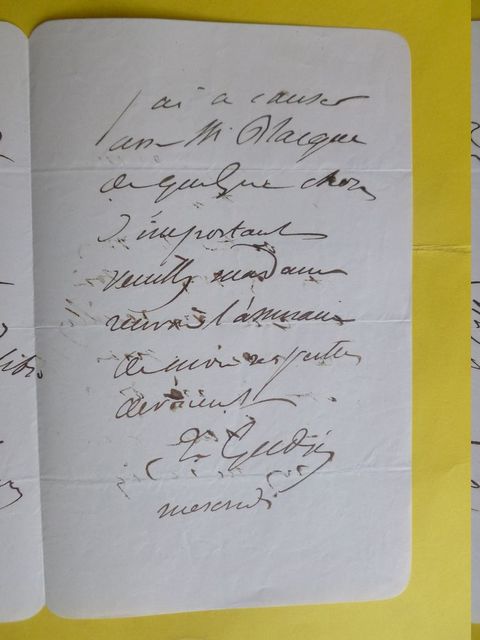 j'ai a causer
avec Mr Blacque
de quelque chose
d'important
veuillez madame
recevoir l'assurance
de mon respectueux
dévouement
T. Gudin
mercredi